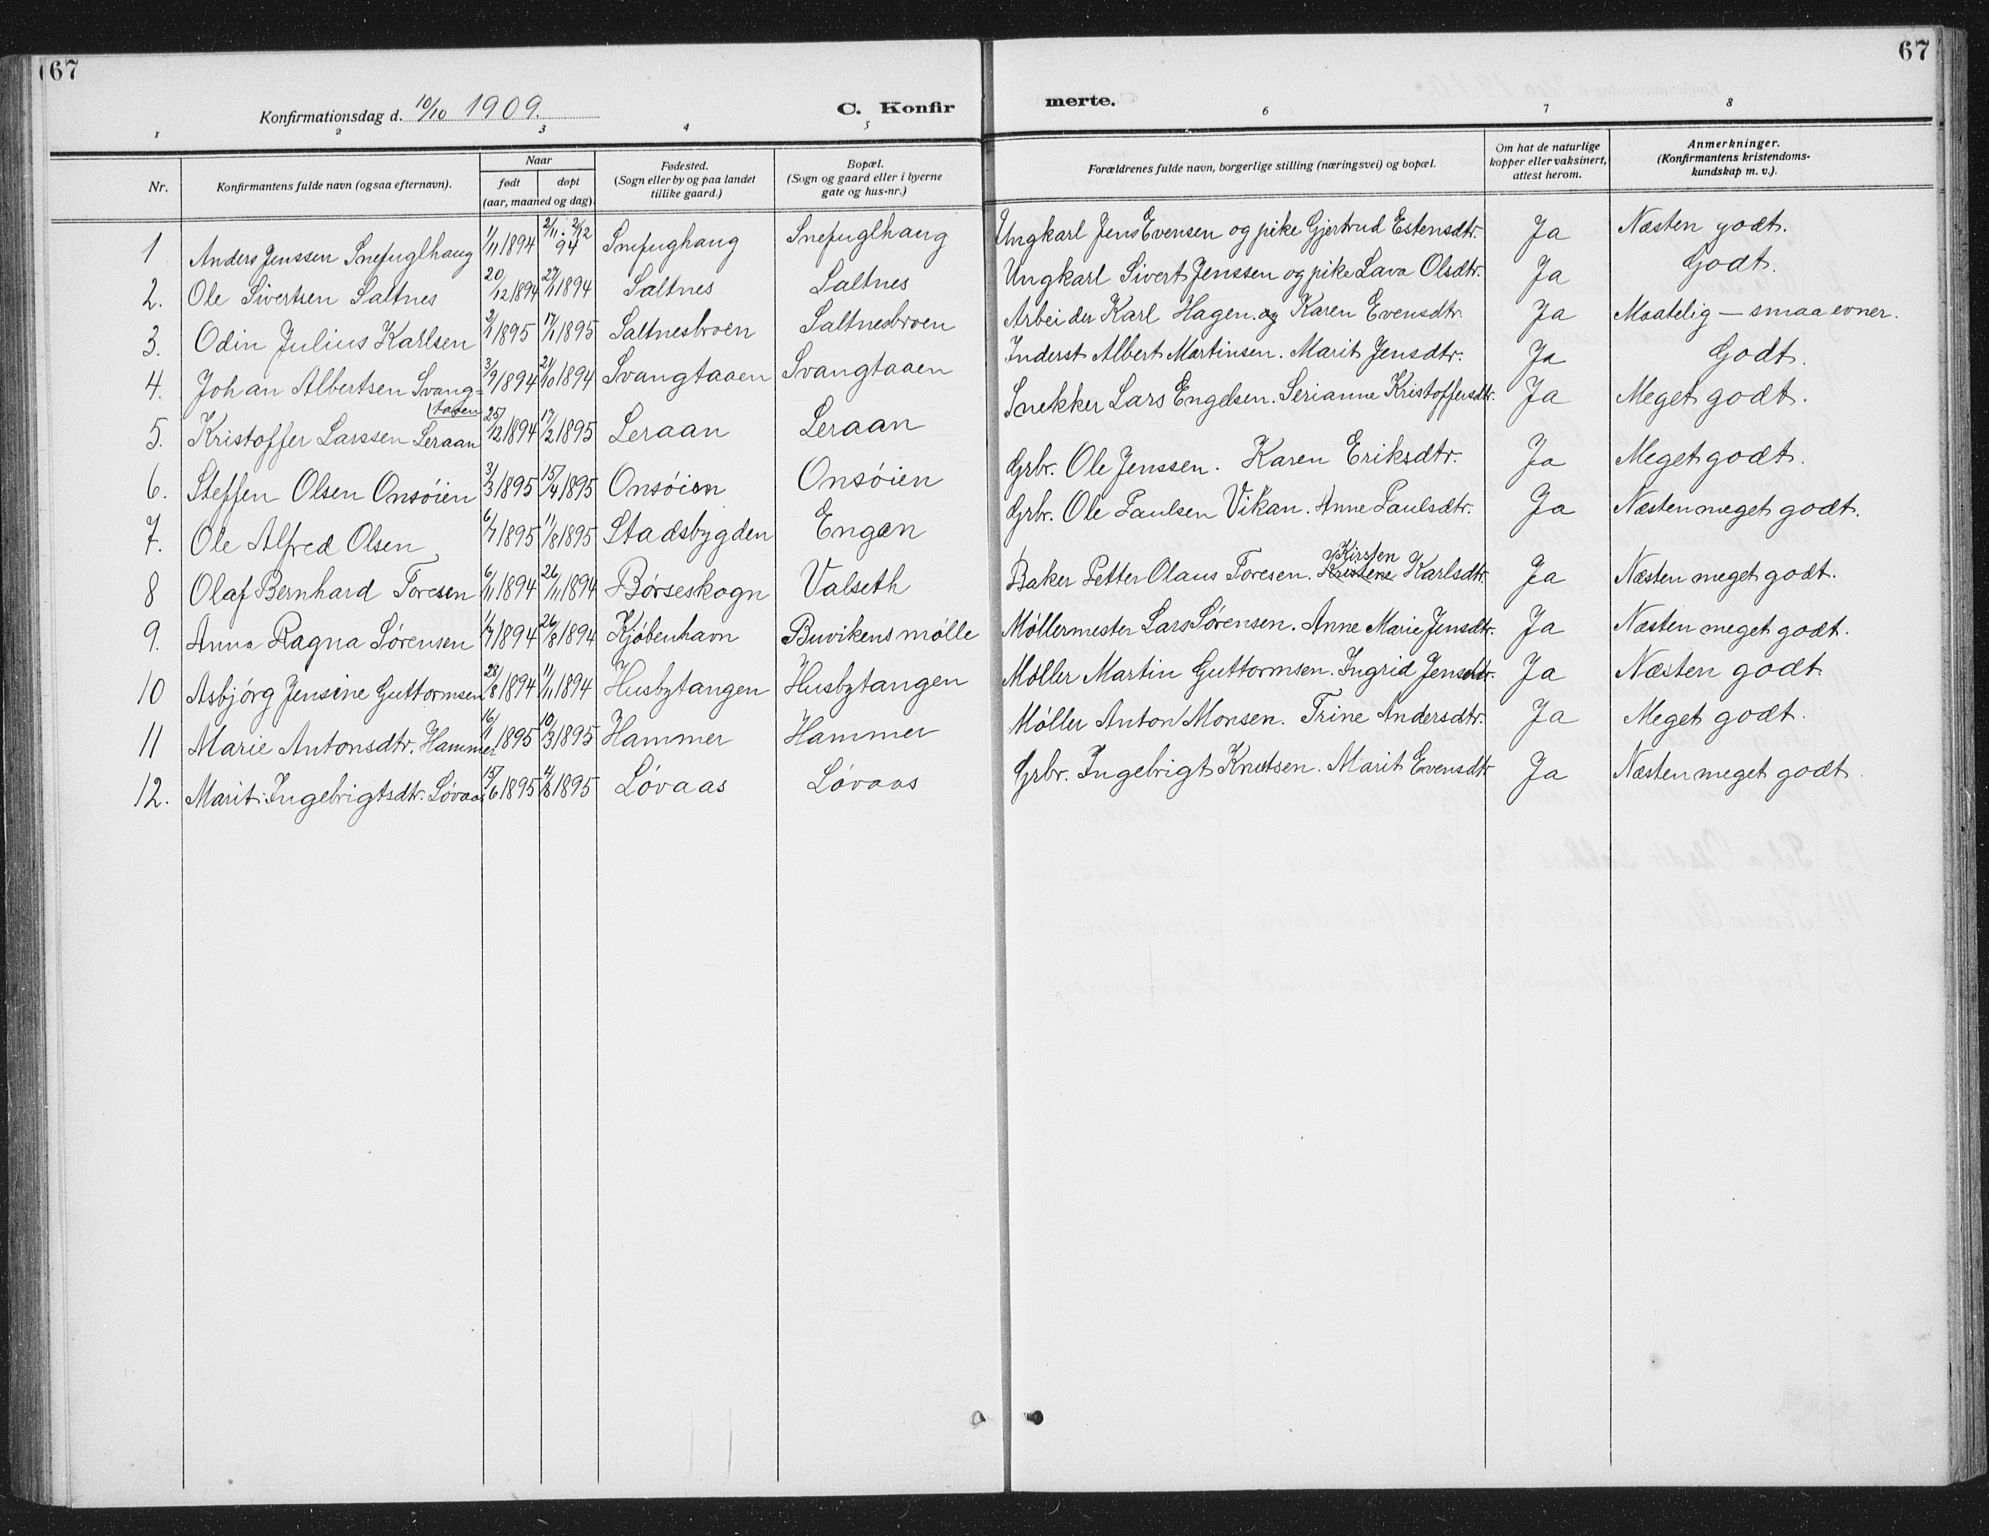 67
67
Konfirmationsdag d. 10/10 1909.
C. Konfir
merte.
1 2 3 4 5 6 7 8
Nr. Konfirmantens fulde navn (ogsaa efternavn). Naar født døpt (aar, maaned og dag). Fødested. (Sogn eller by og paa landet tillike gaard.) Bopæl. (Sogn og gaard eller i byerne gate og hus-nr.) Forældrenes fulde navn, borgerlige stilling (næringsvei) og bopæl. Om hat de naturlige kopper eller vaksinert, attest herom. Anmerkninger. (Konfirmantens kristendoms-kundskap m. v.).
1 Anders Jenssen Snefuglhaug 1/11 1894 2/11. 2/12 94 Snefughaug Snefuglhaug Ungkarl Jens Evensen og pike Gjertrud Estensdtr. Ja Næsten godt.
2. Ole Sivertsen Saltnes 20/12 1894 1894 Saltnes Saltnes Ungkarl Sivert Jenssen og pike Lava Olsdtr. Ja Godt.
3. Odin Julius Karlsen 1895 1895 Saltnesbroen Saltnesbroen Arbeider Karl Hagen. og Karen Evensdtr. Ja Maatelig – smaa evner.
4. Johan Albertsen Svang-taaen 3/9 1894 21/10 1894 Svangtaaen Svangtaaen Inderst Albert Martinsen. Marit Jensdtr. Ja Godt.
5. Kristoffer Larssen Leraan 25/12 1894 17/2 1895 Leraan Leraan Snekker Lars Engelsen. Serianne Kristoffersdtr. Ja Meget godt.
6. Steffen Olsen Onsøien 3/3 1895 15/4 1895 Onsøien Onsøien Grbr. Ole Jenssen. Karen Eriksdtr. Ja Meget godt.
7. Ole Alfred Olsen 6/7 1895 11/8 1895 Stadsbygden Engen Grbr. Ole Paulsen Vikan. Anne Paulsdtr. Ja Næsten meget godt.
8 Olaf Bernhard Toresen 6/11 1894 26/11 1894 Børseskogn Valseth Baker Petter Olaus Toresen. Kristene Kirsten Karlsdtr. Ja Næsten meget godt.
9. Anna Ragna Sørensen 1/7 1894 26/8 1894 Kjøbenhavn Buvikens mølle Møllermester Lars Sørensen. Anne Marie Jensdtr. Ja Næsten meget godt.
10 Asbjørg Jensine Guttormsen 28/8 1894 11/11 1894 Husbytangen Husbytangen Møller Martin Guttormsen. Ingrid Jensdtr. Ja Næsten godt.
11 Marie Antonsdtr. Hammer 16/1 1895 10/3 1895 Hammer Hammer Møller Anton Monsen. Trine Andersdtr. Ja Meget godt.
12. Marit Ingebrigtsdtr. Løvaas 15/6 1895 1895 Løvaas Løvaas Grbr. Ingebrigt Knutsen. Marit Evensdtr Ja Næsten meget godt.